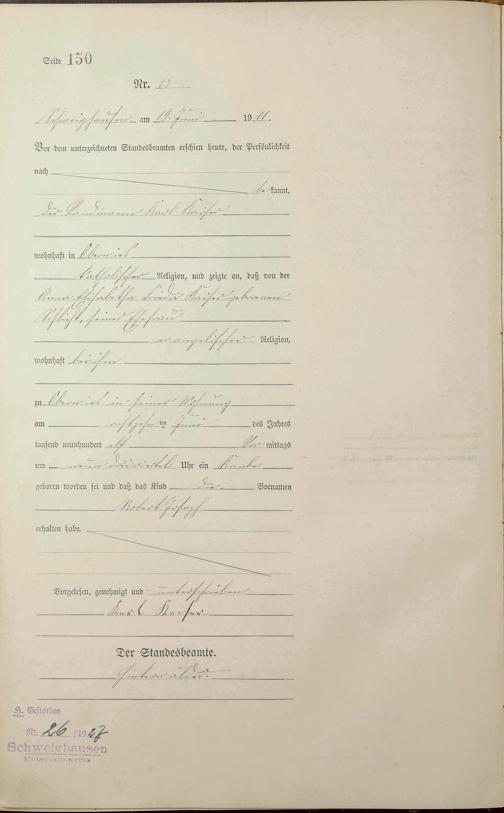 Seite 150
Nr. 13
Schweighausen am 19. Juni 1911.
Vor dem unterzeichneten Standesbeamten erschien heute, der Persönlichkeit
nach
bekannt,
der Landmann Karl Kaiser
wohnhaft in Oberwies
katholischer Religion, und zeigte an, daß von der
Anna Elisabetha Frieda Kaiser geborenen
Schlicht, seiner Ehefrau
evangelischer Religion,
wohnhaft bei ihm
zu Oberwies in seiner Wohnung
am achtzehnten Juni des Jahres
tausend neunhundert elf Vormittags
um neun Uhr ein Knabe
geboren worden sei und daß das Kind die Vornamen
Robert Joseph
erhalten habe.
Vorgelesen, genehmigt und unterschrieben
Karl Kaiser
Der Standesbeamte.
H. Gestorben
Nr. 26/1927
Schweighausen